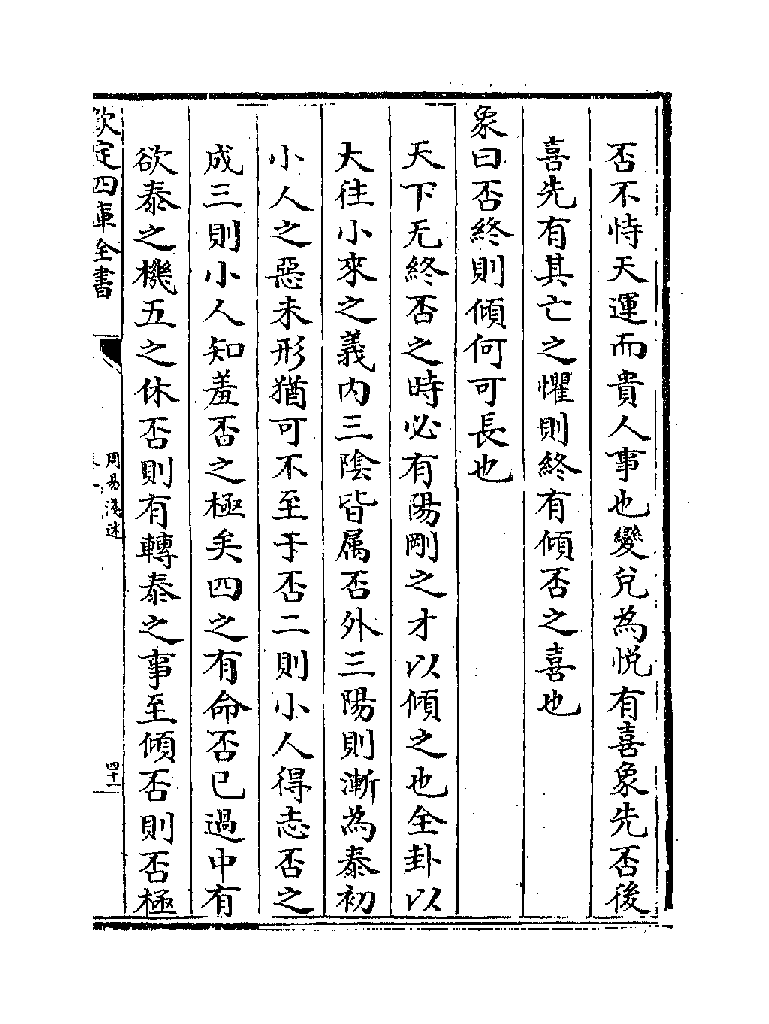 否不恃天運而貴人事也變兌為悦有喜象先否後
喜先有其亡之懼則終有傾否之喜也
象曰否終則傾何可長也
天下无終否之時必有陽剛之才以傾之也全卦以
大往小來之義内三陰皆属否外三陽則漸為泰初
小人之惡未形猶可不至于否二則小人得志否之
成三則小人知羞否之極矣四之有命否已過中有
欲泰之機五之休否則有轉泰之事至傾否則否極
欽定四庫全書
周易淺述
四十二